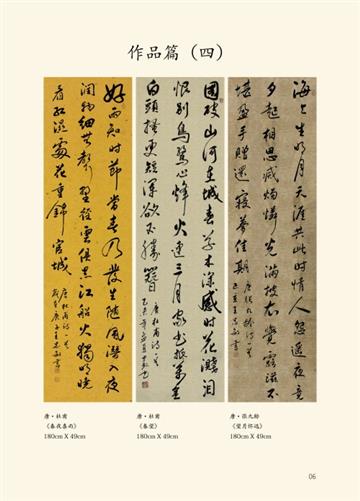 作品篇（四）
好雨知时节当春乃发生随风潜入夜
润物细无声野径云俱黑江船火独明晓
看红湿处花重锦官城 唐杜甫诗一首
國破山河在城春草木深感时花溅泪
恨别鸟惊心烽火连三月家书抵万金
白头搔更短浑欲不胜簪 唐杜甫诗一首
海上生明月天涯共此时情人怨遥夜竟
夕起相思灭烛怜光满披衣觉露滋不
堪盈手赠还寝梦佳期 唐张九龄诗一首
唐·杜甫
《春夜喜雨》
180cm X 49cm
唐·杜甫
《春望》
180cm X 49cm
唐·张九龄
《望月怀远》
180cm X 49cm
06